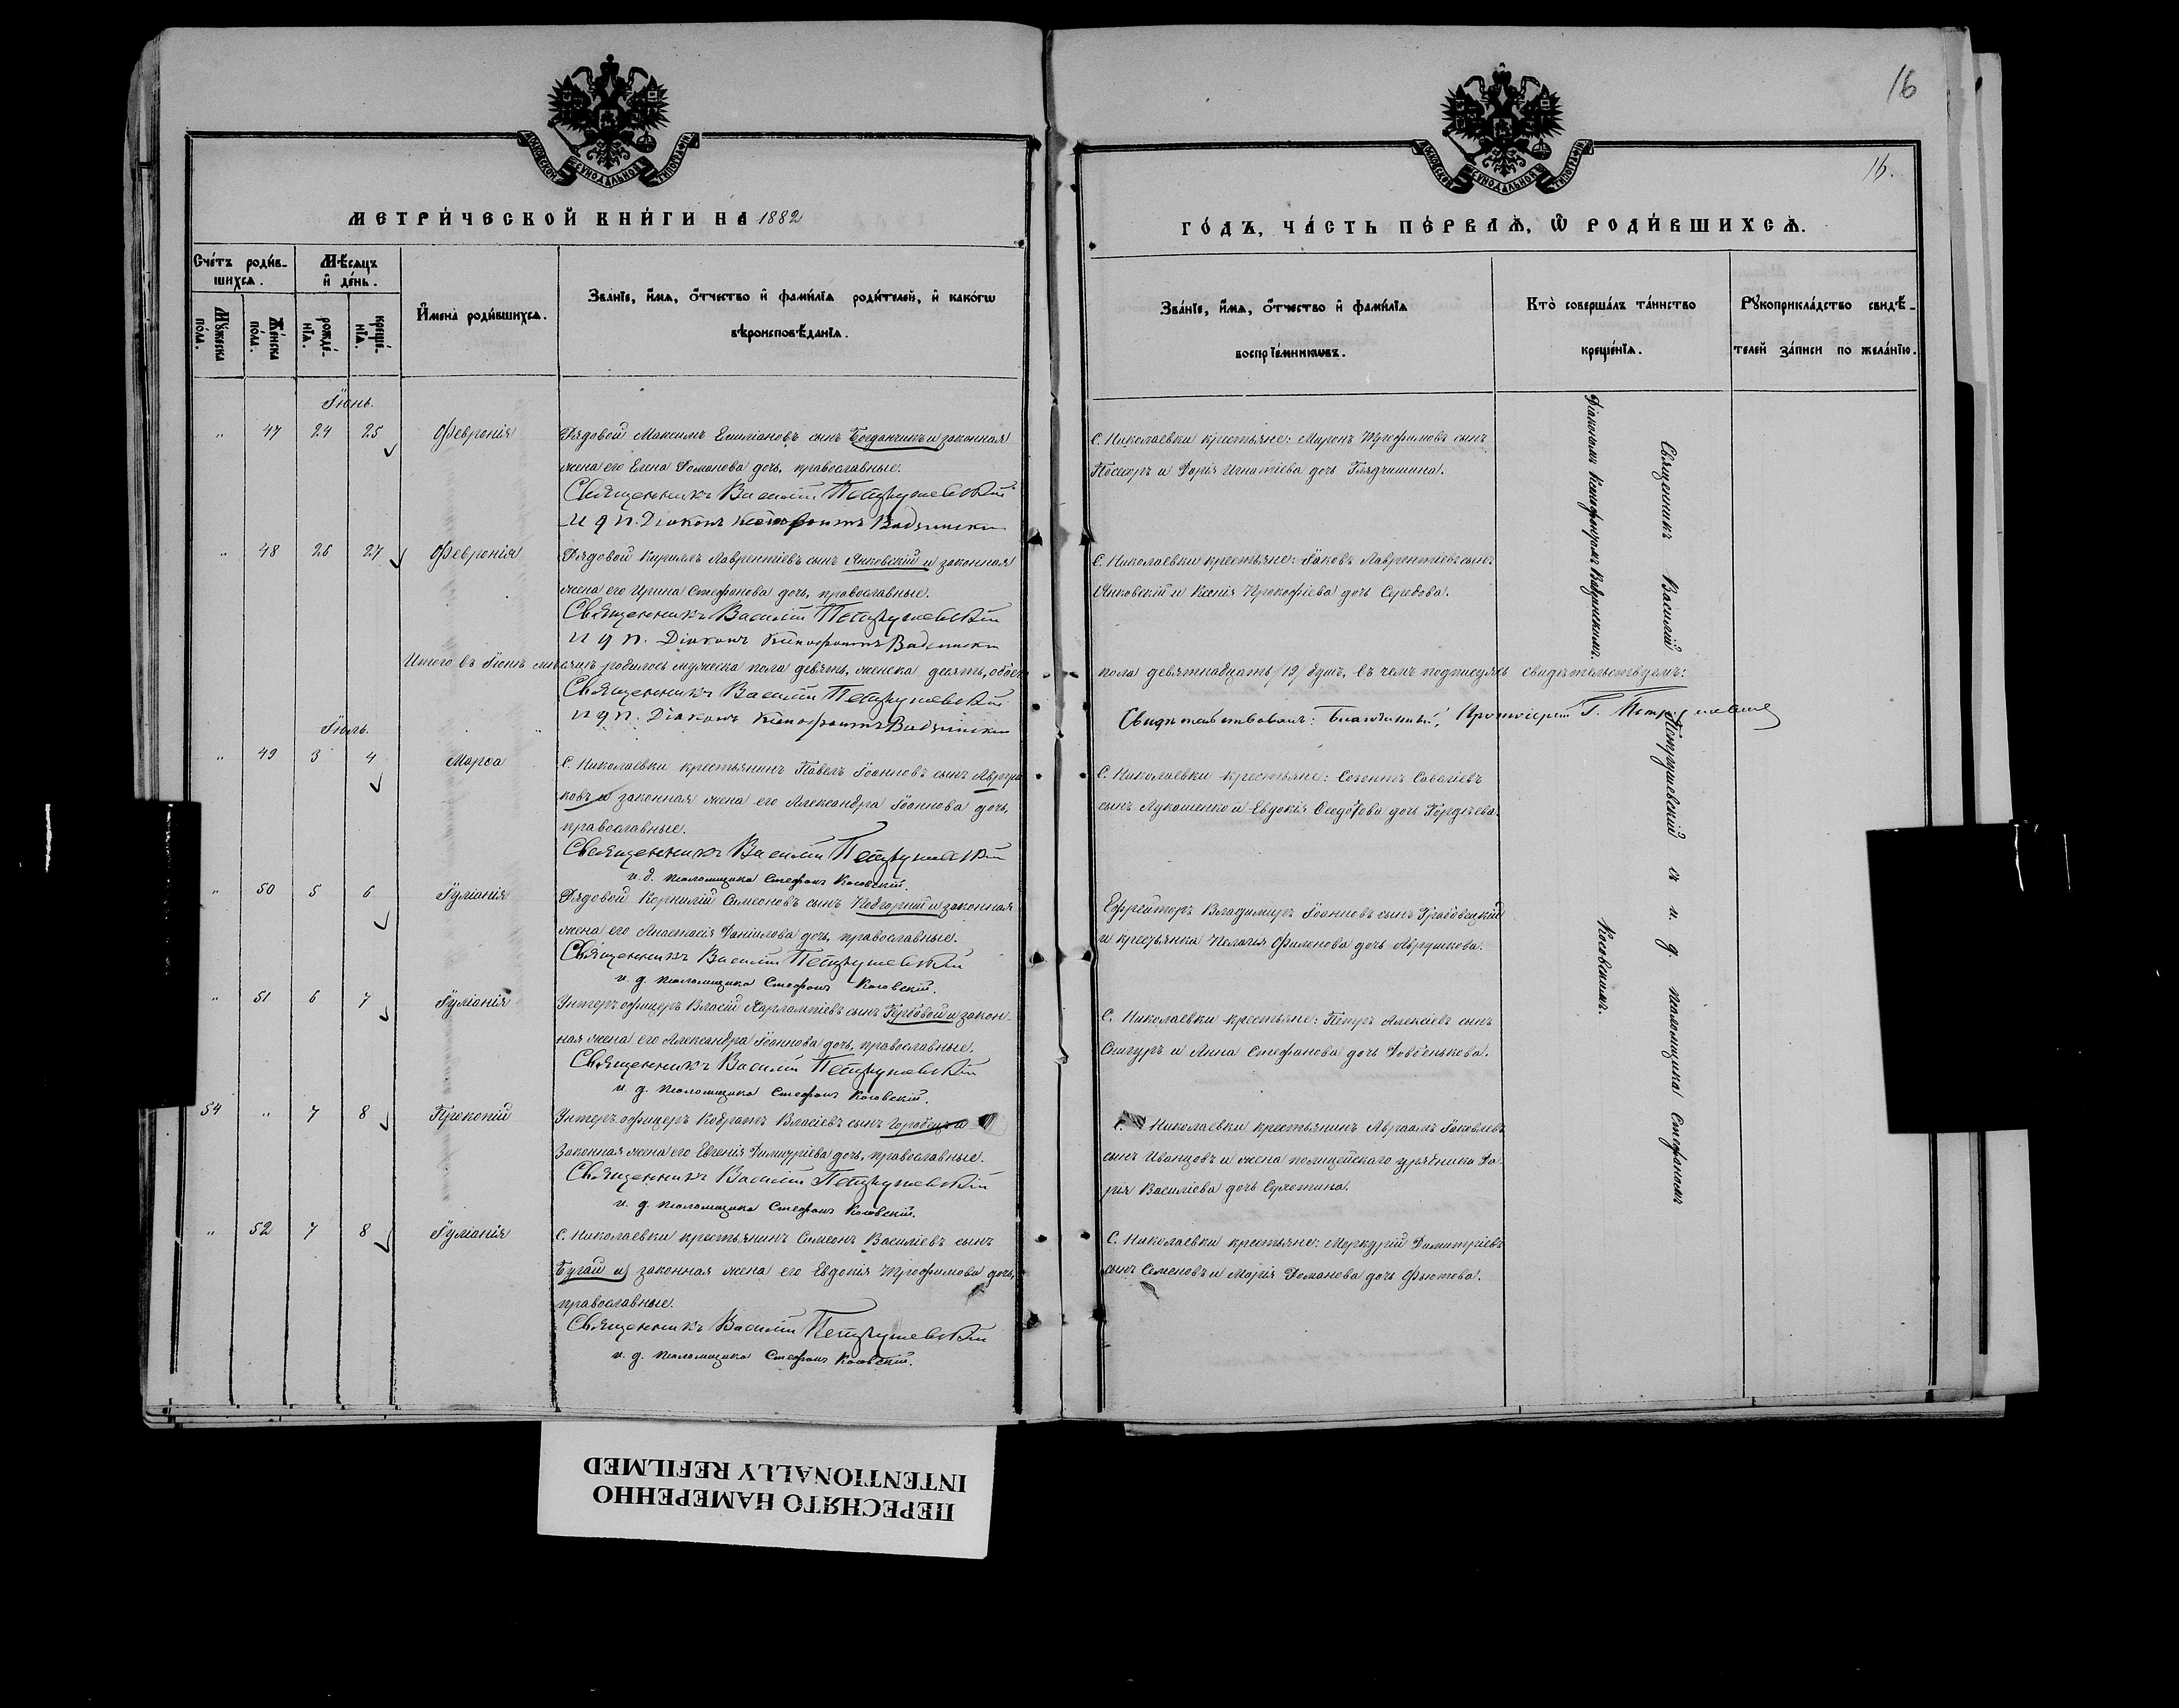 16
16.
МОСКОВСКОЙ СѴНОДАЛЬНОЙ ТИПОГРАФІИ
МОСКОВСКОЙ СѴНОДАЛЬНОЙ ТИПОГРАФІИ
МЕТРИ́ЧЕСКОЙ КНИ́ГИ НА 1882
ГО́ДЪ, ЧА́СТЬ ПЕ́РВАѦ, Ѿ РОДИ́ВШИХСѦ.
Сче́тъ роди́в-
шихсѧ.
Мѣ́сѧцъ
и де́нь.
Мꙋ́жеска по́ла.
Же́нска по́ла.
рожде́-нїѧ.
креще́-нїѧ.
И҆мена̀ роди́вшихсѧ.
Зва́нїе, и҆́мѧ, ѻ҆́тчество и҆ фами́лїѧ роди́телей, и҆ како́гѡ
вѣроисповѣ́данїѧ.
Зва́нїе, и҆́мѧ, ѻ҆́тчество и҆ фами́лїѧ
воспрїе́мникѡвъ.
Кто̀ соверша́лъ та́инство
креще́нїѧ.
Рꙋкоприкла́дство свидѣ́-
телей за́писи по жела́нїю.
Іюнь.
" 47 24 25 Февронія
Рядовой Максимъ Емиліановъ сынъ Богданчикъ и законная
жена его Елена Романова дочь, православные.
Священникъ Василій Петрушевскій
И д п. Діаконъ Ксенофонтъ Вадзинскій
С. Николаевки крестьяне: Миронъ Трофимовъ сынъ
Посесоръ и Дарія Игнатіева дочь Глядчишина.
" 48 26 27 Февронія
Рядовой Кириллъ Лаврентіевъ сынъ Янковскій и законная
жена его Ирина Стефанова дочь, православные.
Священникъ Василій Петрушевскій
И д п. Діаконъ Ксенофонтъ Вадзинскій
С. Николаевки крестьяне: Іаковъ Лаврентіевъ сынъ
Янковскій и Ксенія Прокофіева дочь Середова.
Итого въ Іюнѣ мѣсяцѣ родилось мужеска пола девять, женска десять, обоего
пола девятнадцать /19/ душъ, въ чемъ подписуясь свидѣтельствуемъ:
Священникъ Василій Петрушевскій
И д п. Діаконъ Ксенофонтъ Вадзинскій
Свидѣтельствовалъ: Благочинный, Протоіерей Г. Петрушевскій
Іюль.
" 49 3 4 Марѳа
С. Николаевки крестьянинъ Павелъ Іоанновъ сынъ
ковъ и законная жена его Александра Іоаннова дочь,
православные.
Священникъ Василій Петрушевскій
и. д. псаломщика Стефанъ Косовскій.
С. Николаевки крестьяне: Созонтъ Савеліевъ
сынъ Лукошенко и Евдокія Ѳедотова дочь Гордѣева.
" 50 5 6 Іуліанія
Рядовой Корнилій Симеоновъ сынъ Подгорний и законная
жена его Анастасія Даніилова дочь, православные.
Священникъ Василій Петрушевскій
и. д. псаломщика Стефанъ Косовскій.
Ефрейторъ Владимиръ Іоанновъ сынъ Грабовецкій
и крестьянка Пелагія Филонова дочь
" 51 6 7 Іуліанія
Унтеръ офицеръ Власій Харлампіевъ сынъ Гербовой и закон-
ная жена его Александра Іоаннова дочь, православные.
Священникъ Василій Петрушевскій
и. д. псаломщика Стефанъ Косовскій.
С. Николаевки крестьяне: Петръ Алексіевъ сынъ
Снигуръ и Анна Стефанова дочь Довбенькова.
54 " 7 8 Прокопій
Унтеръ офицеръ Кодратъ Власіевъ сынъ Горобецъ и
законная жена его Евгенія Димитріева дочь, православные.
Священникъ Василій Петрушевскій
и. д. псаломщика Стефанъ Косовскій.
Николаевки крестьянинъ Авраамъ Іаковлевъ
сынъ Иванцовъ и жена полицейскаго урядника Да-
рія Василіева дочь Сухотина.
" 52 7 8 Іуліанія
С. Николаевки крестьянинъ Симеонъ Василіевъ сынъ
Бугай и законная жена его Евдокія Трофимова дочь,
православные.
Священникъ Василій Петрушевскій
и. д. псаломщика Стефанъ Косовскій.
С. Николаевки крестьяне: Меркурій Димитріевъ
сынъ Семеновъ и Марія Романова дочь Фьютова.
Священникъ Василій Петрушевскій съ и. д. псаломщика Стефаномъ
Косовскимъ.
Діакономъ Ксенофонтомъ Вадзинскимъ.
ПЕРЕСНЯТО НАМЕРЕННО
INTENTIONALLY REFILMED